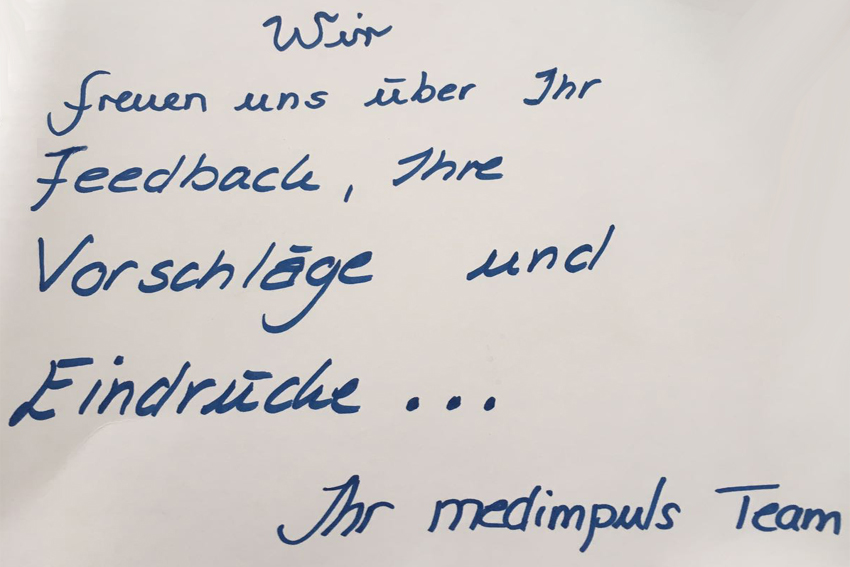 Wir
freuen uns über Ihr
Feedback, Ihre
Vorschläge und
Eindrücke ...
Ihr medimpuls Team